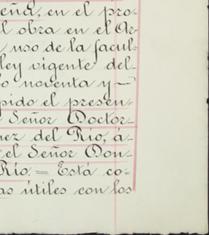 eña, en el pro-
l obra en el Ar
uso de la facul-
ley vigente del
o noventa y—
pido el presen-
Señor Doctor-
nez del Rio, á-
el Señor Don-
Rio. — Está co-
as útiles con los